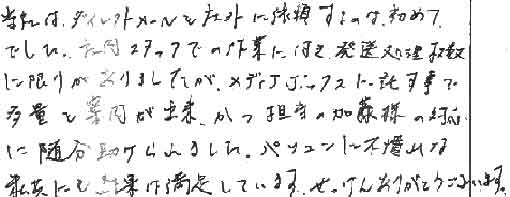 当社は、ダイレクトメールを社外に依頼するのは、初めて
でした。社内スタッフでの作業に付き、発送処理枚数
に限りがありましたが、メディアボックスに託す事で
多量を案内が出来、かつ担当の加藤様の対応
に随分助けられました。パソコンに不慣れな
私共にも結果は満足しています。ありがとうございます。